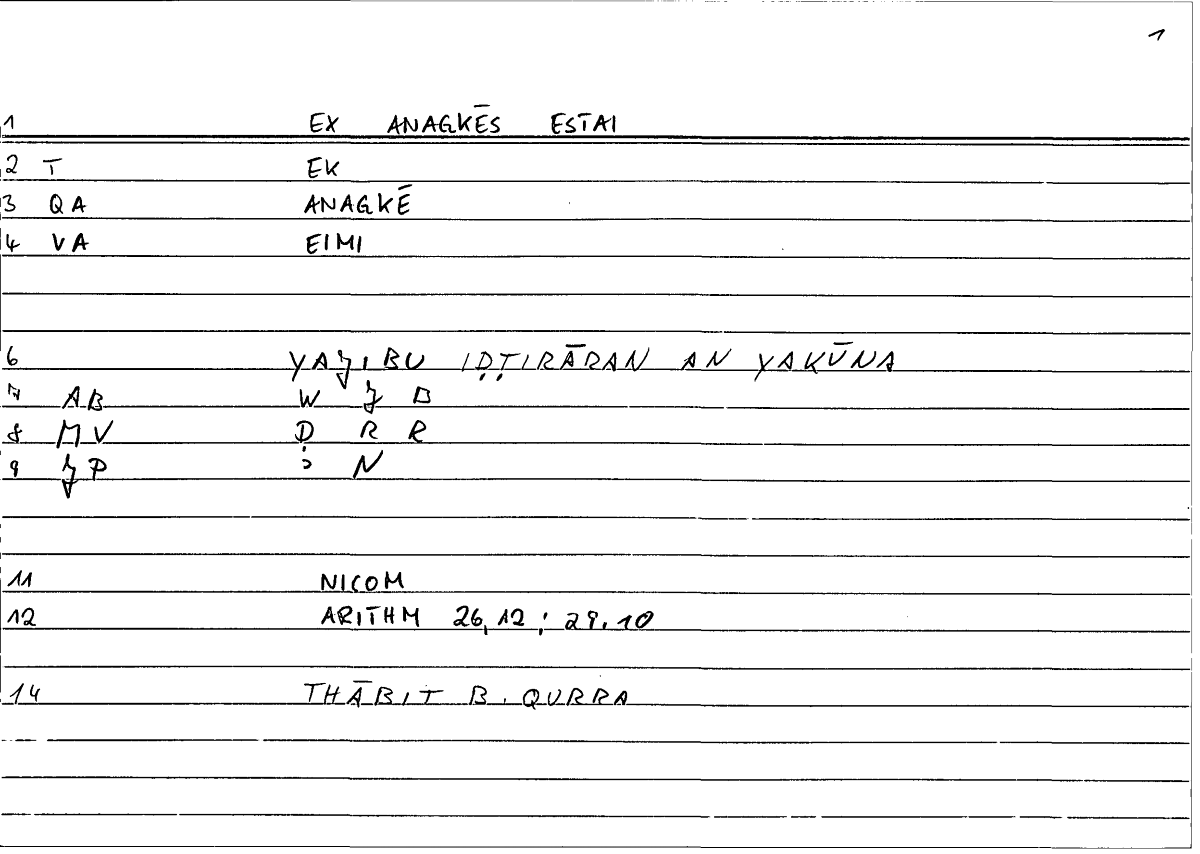 1
1 EX ANAGKĒS ESTAI
2 T EK
3 QA ANAGKĒ
4 VA EIMI
6 YAJIBU IḌṬIRĀRAN AN YAKŪNA
7 AB W J B
8 MV Ḍ R R
9 JP ʾ N
11 NICOM
12 ARITHM 26,12 ; 29.10
14 THĀBIT B. QURRA